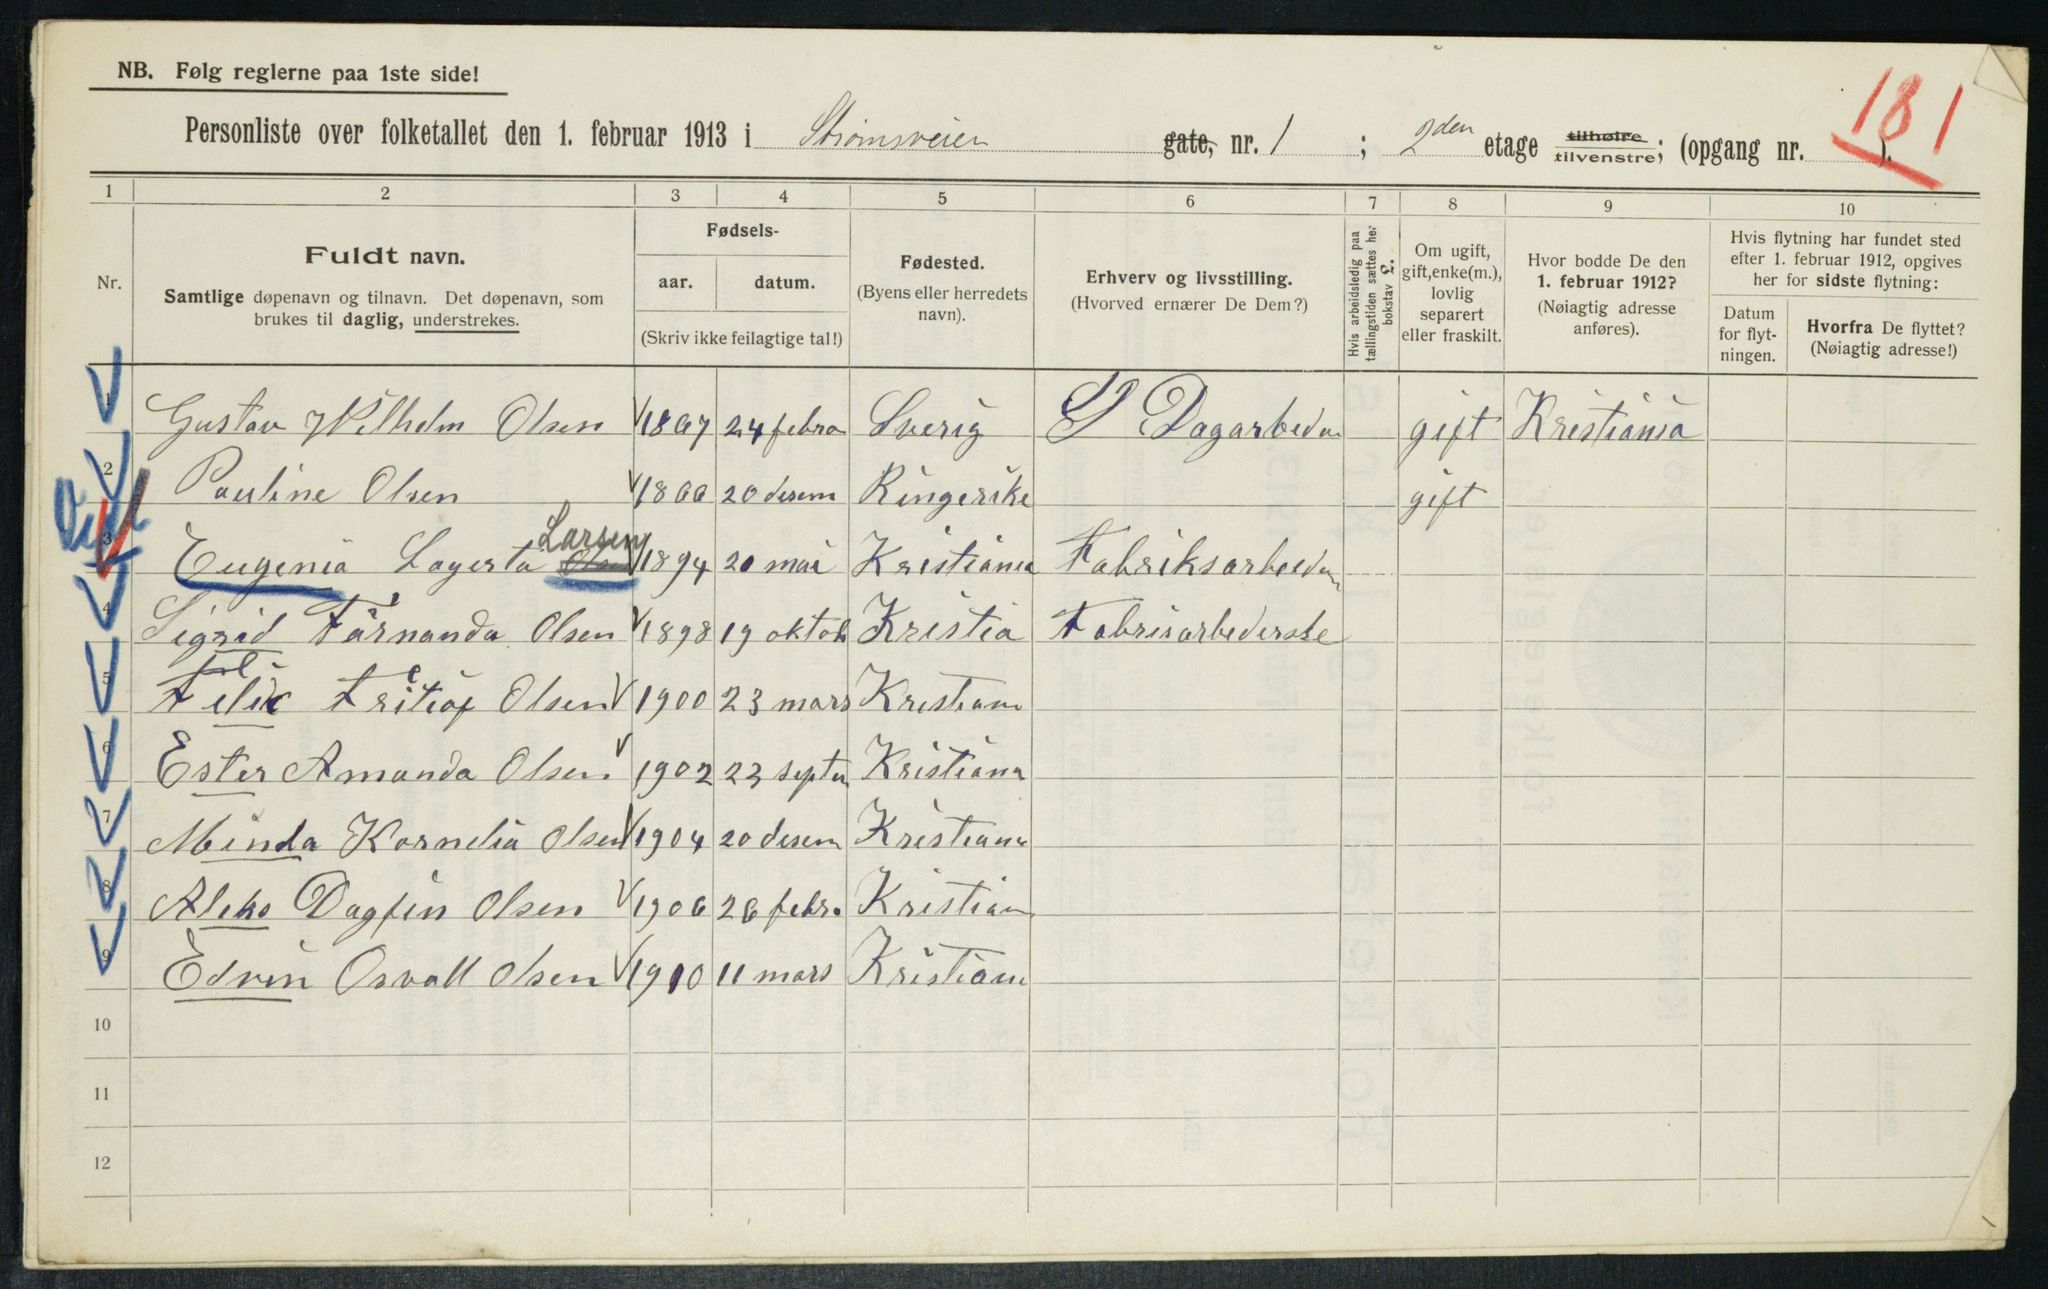 NB. Følg reglerne paa 1ste side!
181
Personliste over folketallet den 1. februar 1913 i Strømsveien gate, nr. 1 ; 2den etage tilhøire tilvenstre; (opgang nr. ).
1 2 3 4 5 6 7 8 9 10
Nr.
Fuldt navn.
Samtlige døpenavn og tilnavn. Det døpenavn, som
brukes til daglig, understrekes.
Fødsels-
aar. datum.
(Skriv ikke feilagtige tal!)
Fødested.
(Byens eller herredets
navn).
Erhverv og livsstilling.
(Hvorved ernærer De Dem?)
Hvis arbeidsledig paa
tællingstiden sættes her
bokstav L.
Om ugift,
gift, enke(m.),
lovlig
separert
eller fraskilt.
Hvor bodde De den
1. februar 1912?
(Nøiagtig adresse
anføres).
Hvis flytning har fundet sted
efter 1. februar 1912, opgives
her for sidste flytning:
Datum
for flyt-
ningen.
Hvorfra De flyttet?
(Nøiagtig adresse!)
1 Gustav Wilhelm Olsen 1867 24 febra Sverig Dagarbeder gift Kristiania
2 Pauline Olsen 1866 20 desem Ringerike gift
3 Eugenia Lagerta Olsen Larsen 1894 20 mai Kristiania Fabriksarbeider
4 Sigrid Farnanda Olsen 1898 19 oktob Kristia Fabrisarbederske
5 Felix Fritiof Olsen 1900 23 mars Kristiani
6 Ester Amanda Olsen 1902 23 septa Kristiana
7 Minda Kornelia Olsen 1904 20 desem Kristiana
8 Aleks Dagfin Olsen 1906 26 febra Kristian
9 Edvin Osvall Olsen 1910 11 mars Kristiani
10
11
12